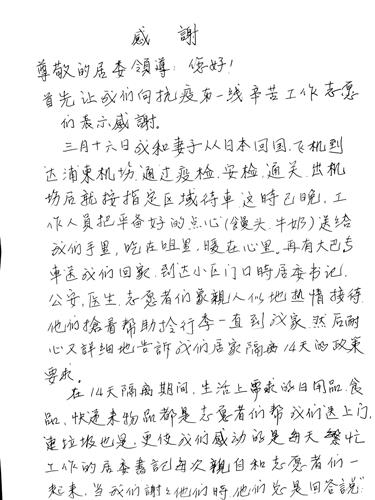 感 謝
尊敬的居委領導：您好！
首先让我们向抗疫第一线辛苦工作志愿
们表示感謝。
三月十六日我和妻子从日本回国，飞机到
达浦東机场，通过疫检、安检、通关、出机
场后就按指定区域待车這時已晚，工
作人員把準备好的点心（饅头、牛奶）送给
我们手里，吃在咀里，暖在心里。再有大巴专
車送我们回家，到达小区门口時居委书记，
公安，医生，志愿者们象親人似地热情接待
他们搶着帮助拎行李一直到我家，然后耐
心又詳細地告訴我们居家隔离14天的政策
要求。
在14天隔离期间，生活上需求的日用品、食
品，快递来物品都是志愿者们帮我们送上门，
連垃圾也是，更使我们感动的是每天繁忙
工作的居委書記每次親自和志愿者们一
起来，当我们謝謝他们時他们总是回答説